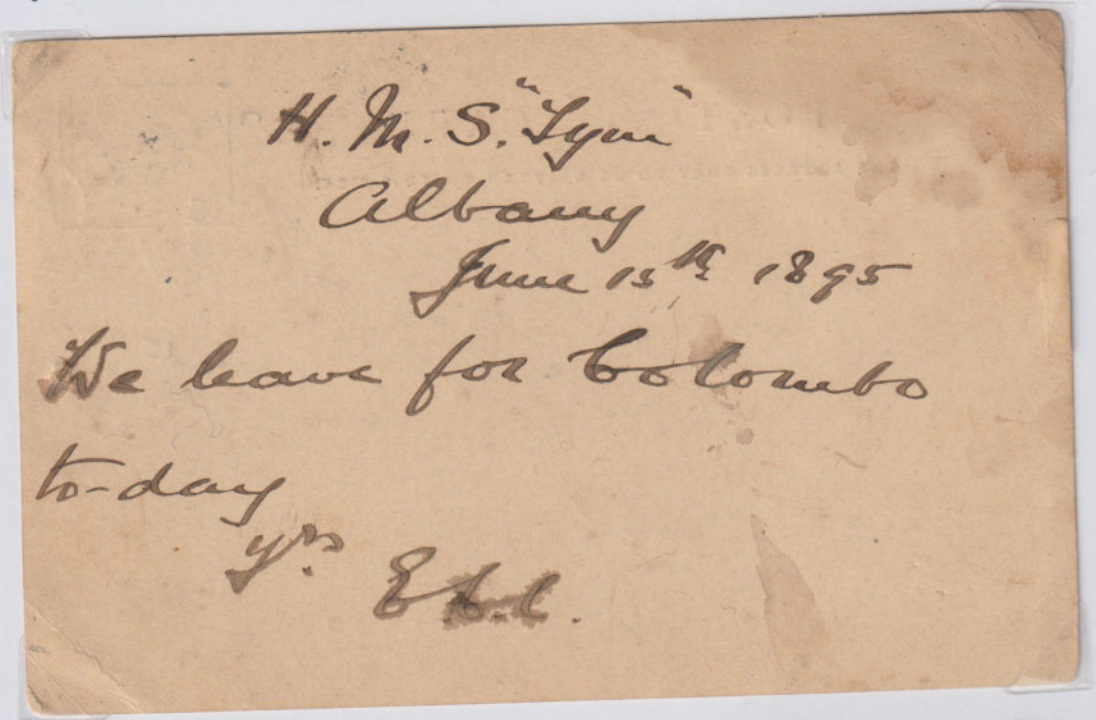 H. M. S. "Tyne"
Albany
June 15th 1895
We leave for Colombo
to-day
yrs. E.C.